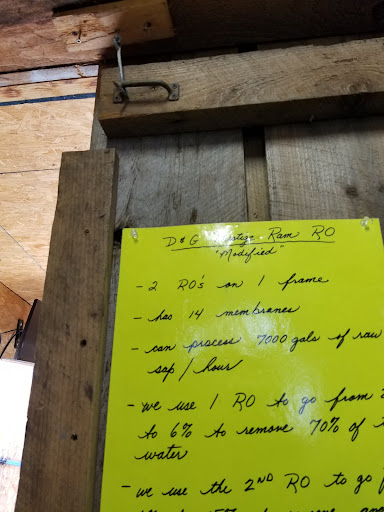 D & G Ram RO
"Modified"
- 2 RO's on 1 frame
- has 14 membranes
- can process 7000 gals of raw
sap / hour
- we use 1 RO to go from
to 6% to remove 70% of
water
- we use the 2ND RO to go